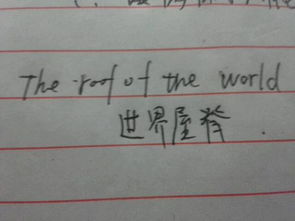 The roof of the world
世界屋脊.